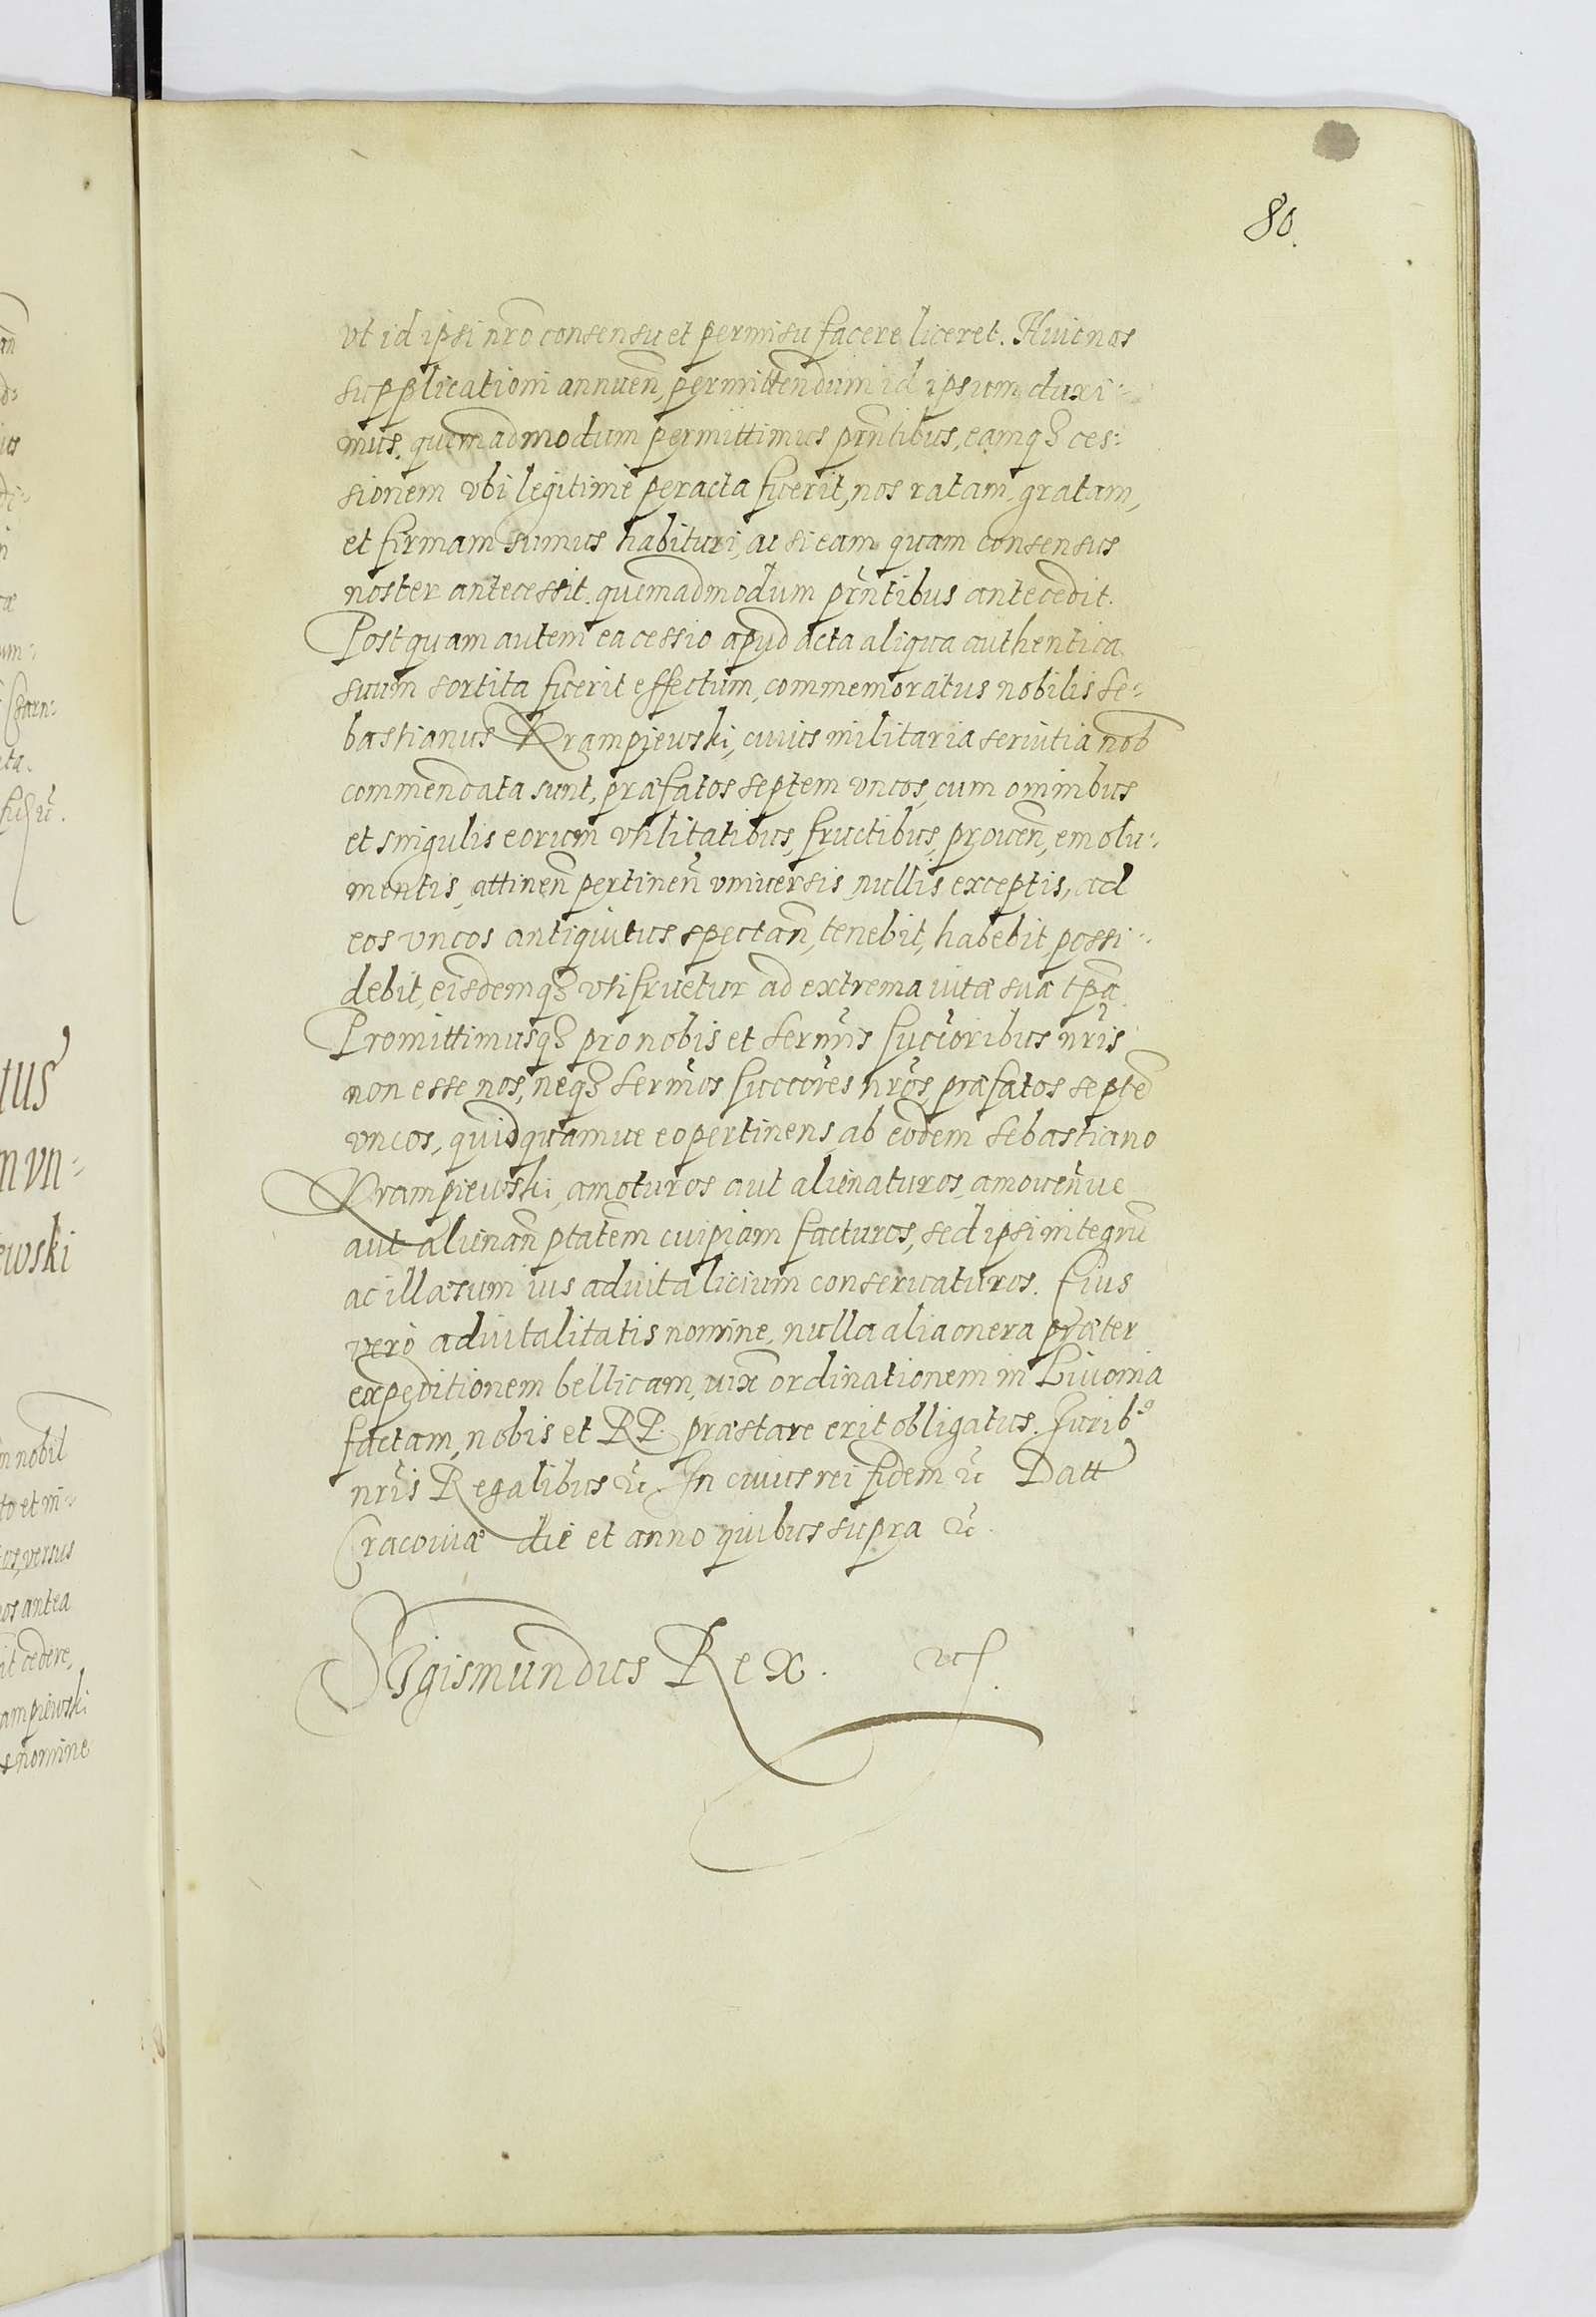 80.
vt id ipsi nro consensu et permisu facere liceret. Huic nos
supplicationi annuen, permittendum id ipsum duxi:
mus. quemadmodum permittimus prntibus, eamq3 ces:
sionem vbi legitime peracta fuerit, nos ratam, gratam,
et firmam sumus habituri, ac si eam quam consensus
noster antecessit. quemadmodum prntibus antecedit.
Postquam autem ea cessio apud acta aliqua authentica
suum sortita fuerit effectum, commemoratus nobilis Se:
bastianus Krampiewski, cuius militaria seruitia nob
commendata sunt, præfatos septem vncos, cum omnibus
et singulis eorum vtilitatibus, fructibus, prouen, emolu:
mentis, attinen pertinen vniuersis nullis exceptis, ad
eos vncos antiquitus spectan, tenebit, habebit, possi:
debit, eisdemq3 vtifruetur ad extrema vitæ suæ tpa.
Promittimusq3 pro nobis et Sermis Succoribus nris
non esse nos, neq3 Sermos Succores nros, præfatos septe
vncos, quidquamue eo pertinens ab eodem Sebastiano
Krampiewski, amoturos aut alienaturos, amouenue
aut alienan ptatem cuipiam facturos, sed ipsi integru
ac illæsum ius aduitalicium conseruaturos. Eius
vero aduitalitatis nomine, nulla alia onera præter
expeditionem bellicam, iux ordinationem in Liuonia
factam, nobis et RP. præstare erit obligatus. Iurib9
nris Regalibus etc. In cuius rei fidem etc Datt
Cracouiæ die et anno quibus supra etc.
Sigismundus Rex.
tus
m vn:
ewski
m nobil
to et in:
cos, versus
nos antea
it cedere,
ampiewski
nomine